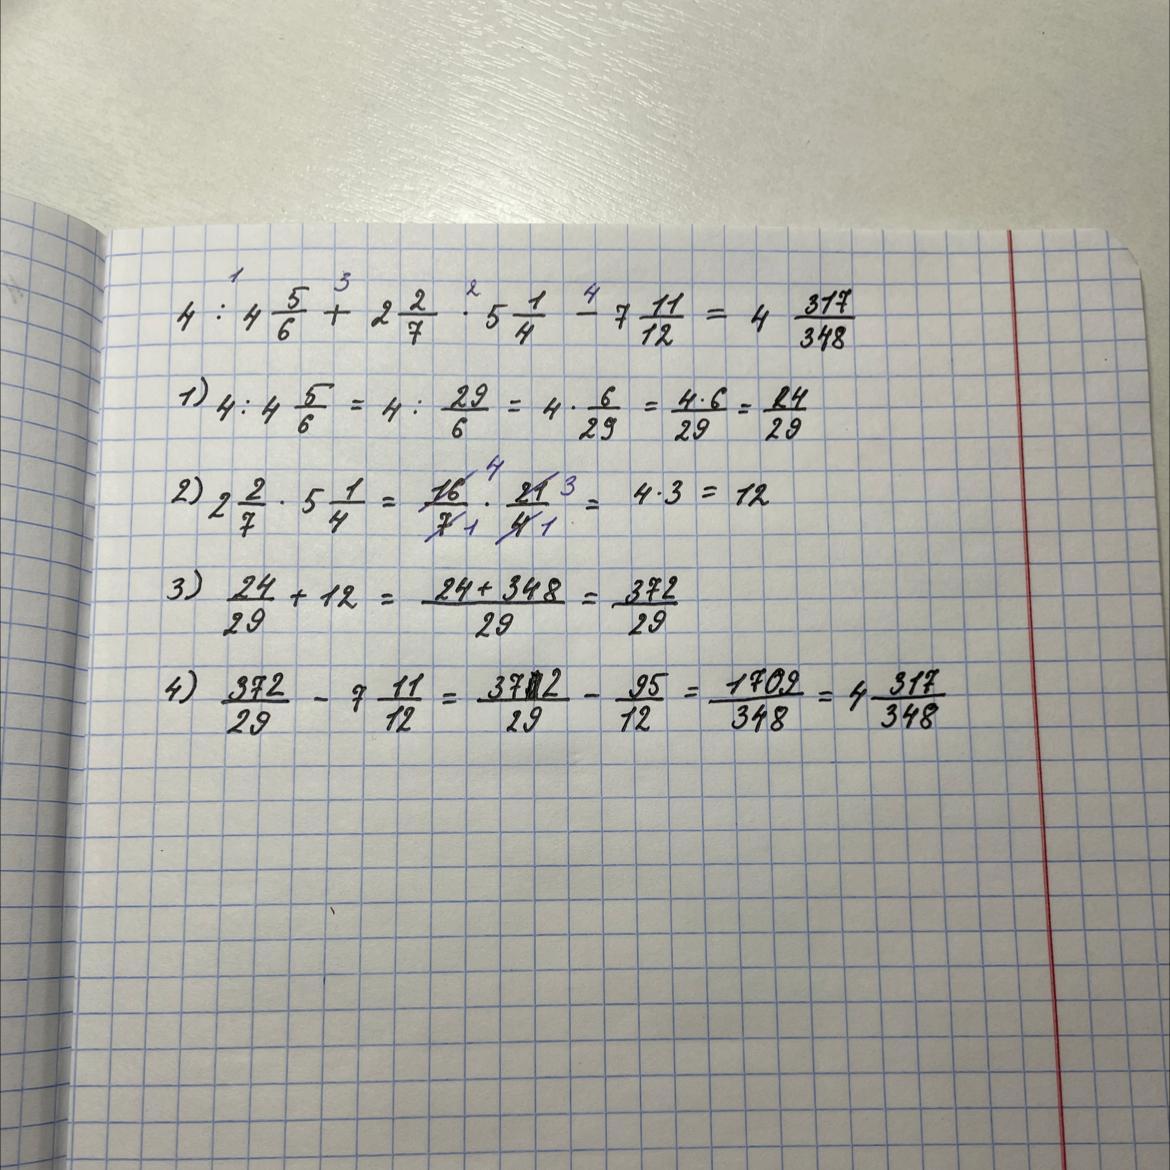 4 : 4 5/6 + 2 2/7 · 5 1/4 - 7 11/12 = 4 317/348
1) 4 : 4 5/6 = 4 : 29/6 = 4 · 6/29 = 4·6/29 = 24/29
2) 2 2/7 · 5 1/4 = 16/7 · 21/4 = 4·3 = 12
3) 24/29 + 12 = 24+348/29 = 372/29
4) 372/29 - 7 11/12 = 372/29 - 95/12 = 1709/348 = 4 317/348